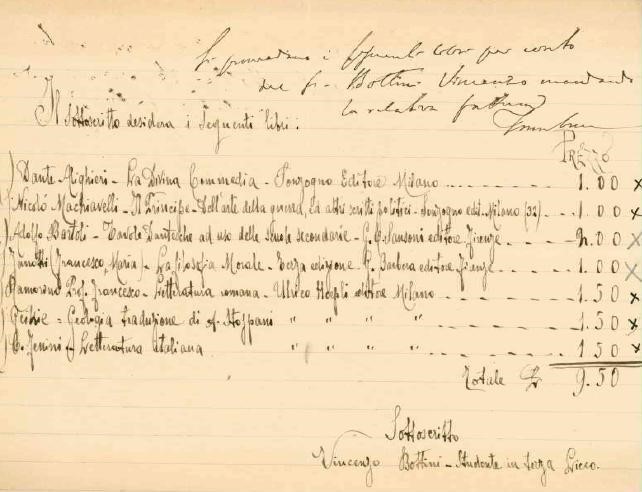 Si provvedano i seguenti libri per conto
del sr. Bottini Vincenzo mandando
la relativa fattura
Il Sottoscritto desidera i seguenti libri:
Prezzo
) Dante Alighieri - La Divina Commedia - Sonzogno Editore Milano ... 1.00 x
Nicolò Machiavelli - Il Principe - Dell'arte della guerra, Ed altri scritti politici - Sonzogno edit. Milano (32) . 1.00 x
) Adolfo Bartoli - Tavole Dantesche ad uso delle Scuole secondarie - G. C. Sansoni editore Firenze - 2.00 x
) Zanotti (Francesco Maria) - La filosofia Morale - Terza edizione - Barbera editore Firenze - 1.00 x
) Ramorino Prof. Francesco - Letteratura romana - Ulrico Hoepli editore Milano 1.50 x
) Geikie - Geologia traduzione di A. Stoppani " " " " 1.50 x
) C. Fenini - Letteratura italiana " " " " 1.50 x
Totale £ 9.50
Sottoscritto
Vincenzo Bottini - Studente in terza Liceo.